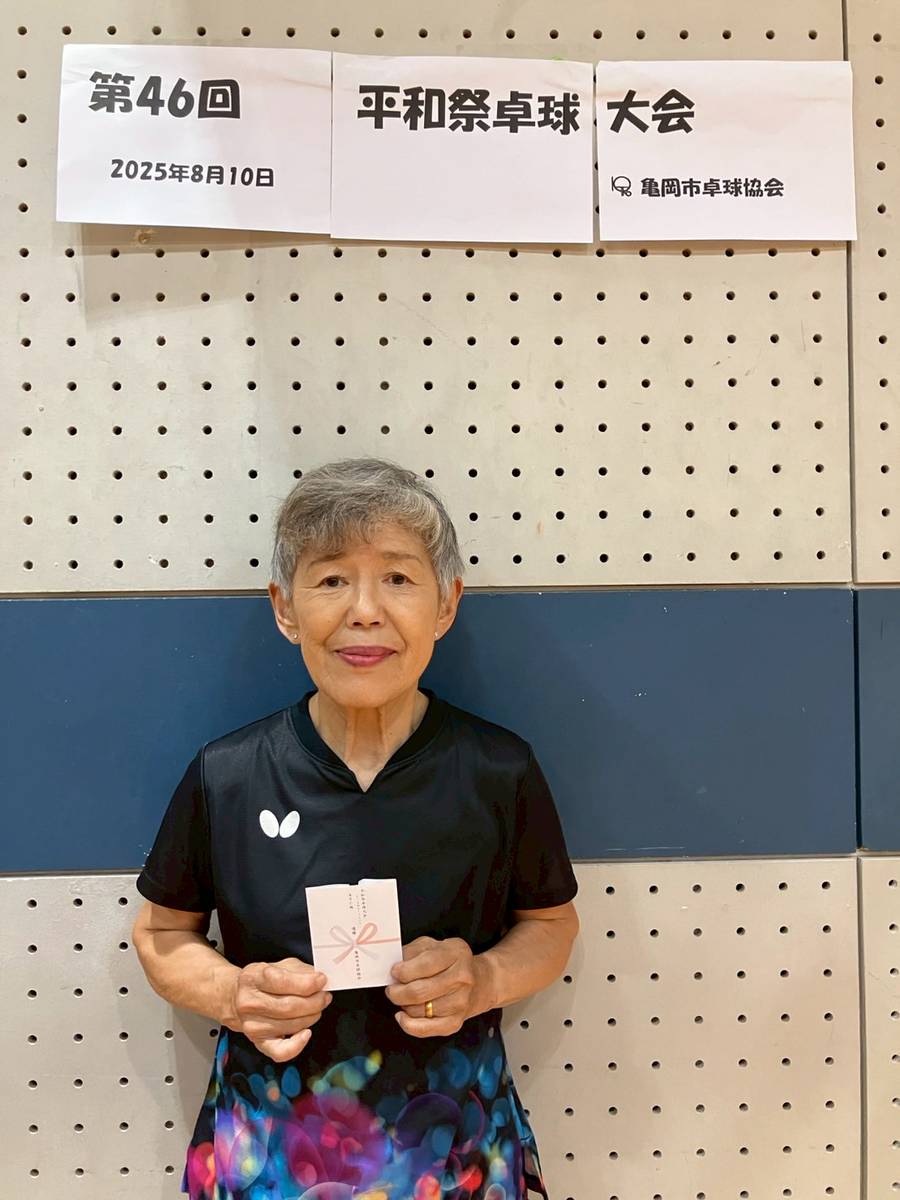 第46回 平和祭卓球大会
2025年8月10日
亀岡市卓球協会